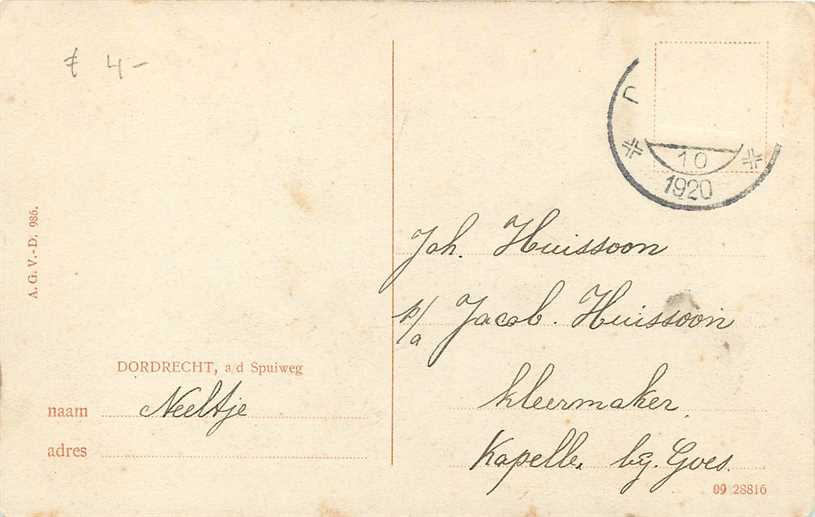 € 4-
10
1920
A. G. V.-D. 986.
DORDRECHT, a/d Spuiweg
naam Neeltje
adres
Joh. Huissoon
p/a Jacob. Huissoon
kleermaker.
Kapelle. bg. Goes.
09 28816